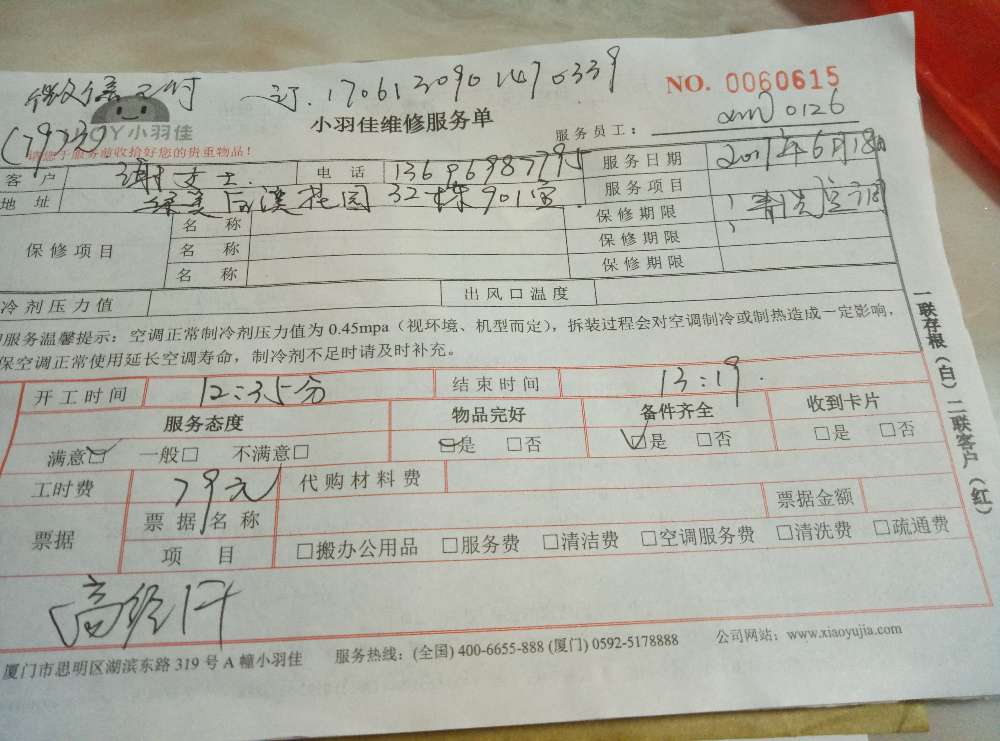 微信支付 订.1706130901470339 NO. 0060615
(79元) JOY小羽佳 小羽佳维修服务单 服务员工： xm 0126
请您于服务前收拾好您的贵重物品！
客 户 谢女士 电 话 13696987795 服务日期 2017年6月18日
地 址 绿美同溪桃园32栋901室 服务项目
保修项目 名 称 保修期限 清洗空调
名 称 保修期限
名 称 保修期限
冷剂压力值 出风口温度
服务温馨提示：空调正常制冷剂压力值为 0.45mpa（视环境、机型而定），拆装过程会对空调制冷或制热造成一定影响，
保空调正常使用延长空调寿命，制冷剂不足时请及时补充。
开工时间 12:35分 结束时间 13:19.
服务态度 物品完好 备件齐全 收到卡片
满意☑ 一般□ 不满意□ ☑是 □否 ☑是 □否 □是 □否
工时费 79元 代购材料费
票据 票据名称 票据金额
项 目 □搬办公用品 □服务费 □清洁费 □空调服务费 □清洗费 □疏通费
厦门市思明区湖滨东路 319 号 A 幢小羽佳 服务热线：(全国) 400-6655-888 (厦门) 0592-5178888 公司网站：www.xiaoyujia.com
一联存根（白）二联客户（红）